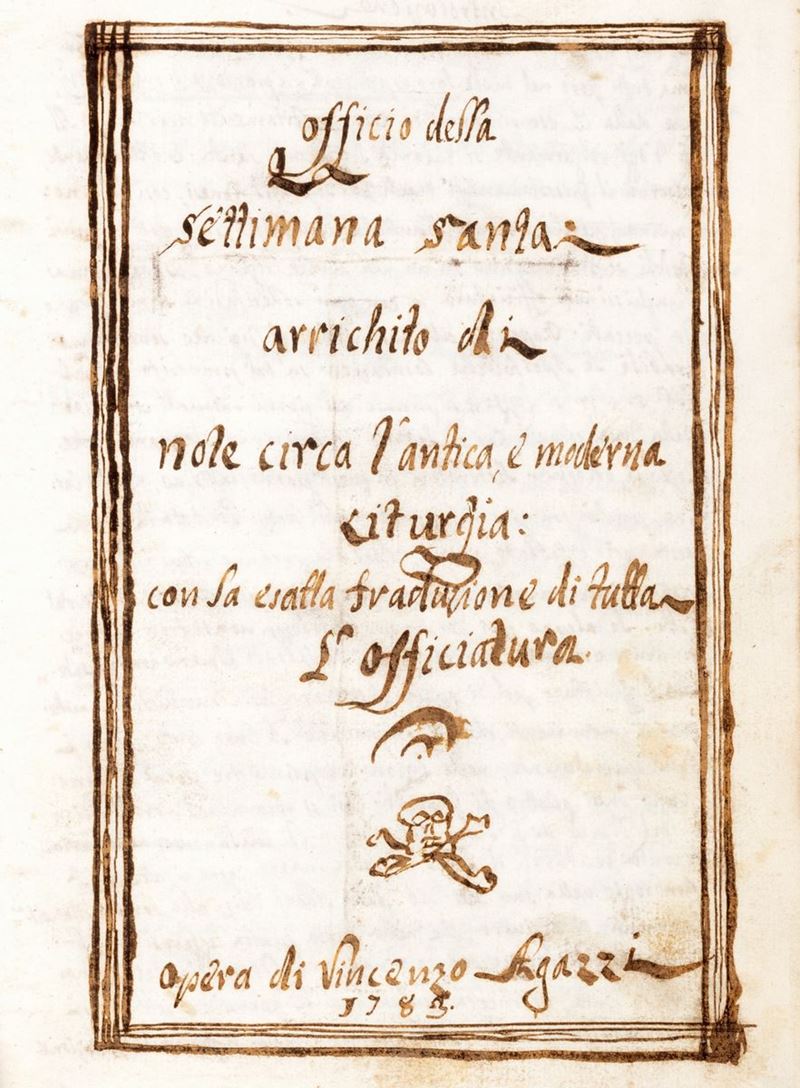 Officio della
Settimana Santa
arrichito di
note circa l'antica, e moderna
Liturgia:
con la esatta traduzione di tutta
L'officiatura.
Opera di Vincenzo Agazzi